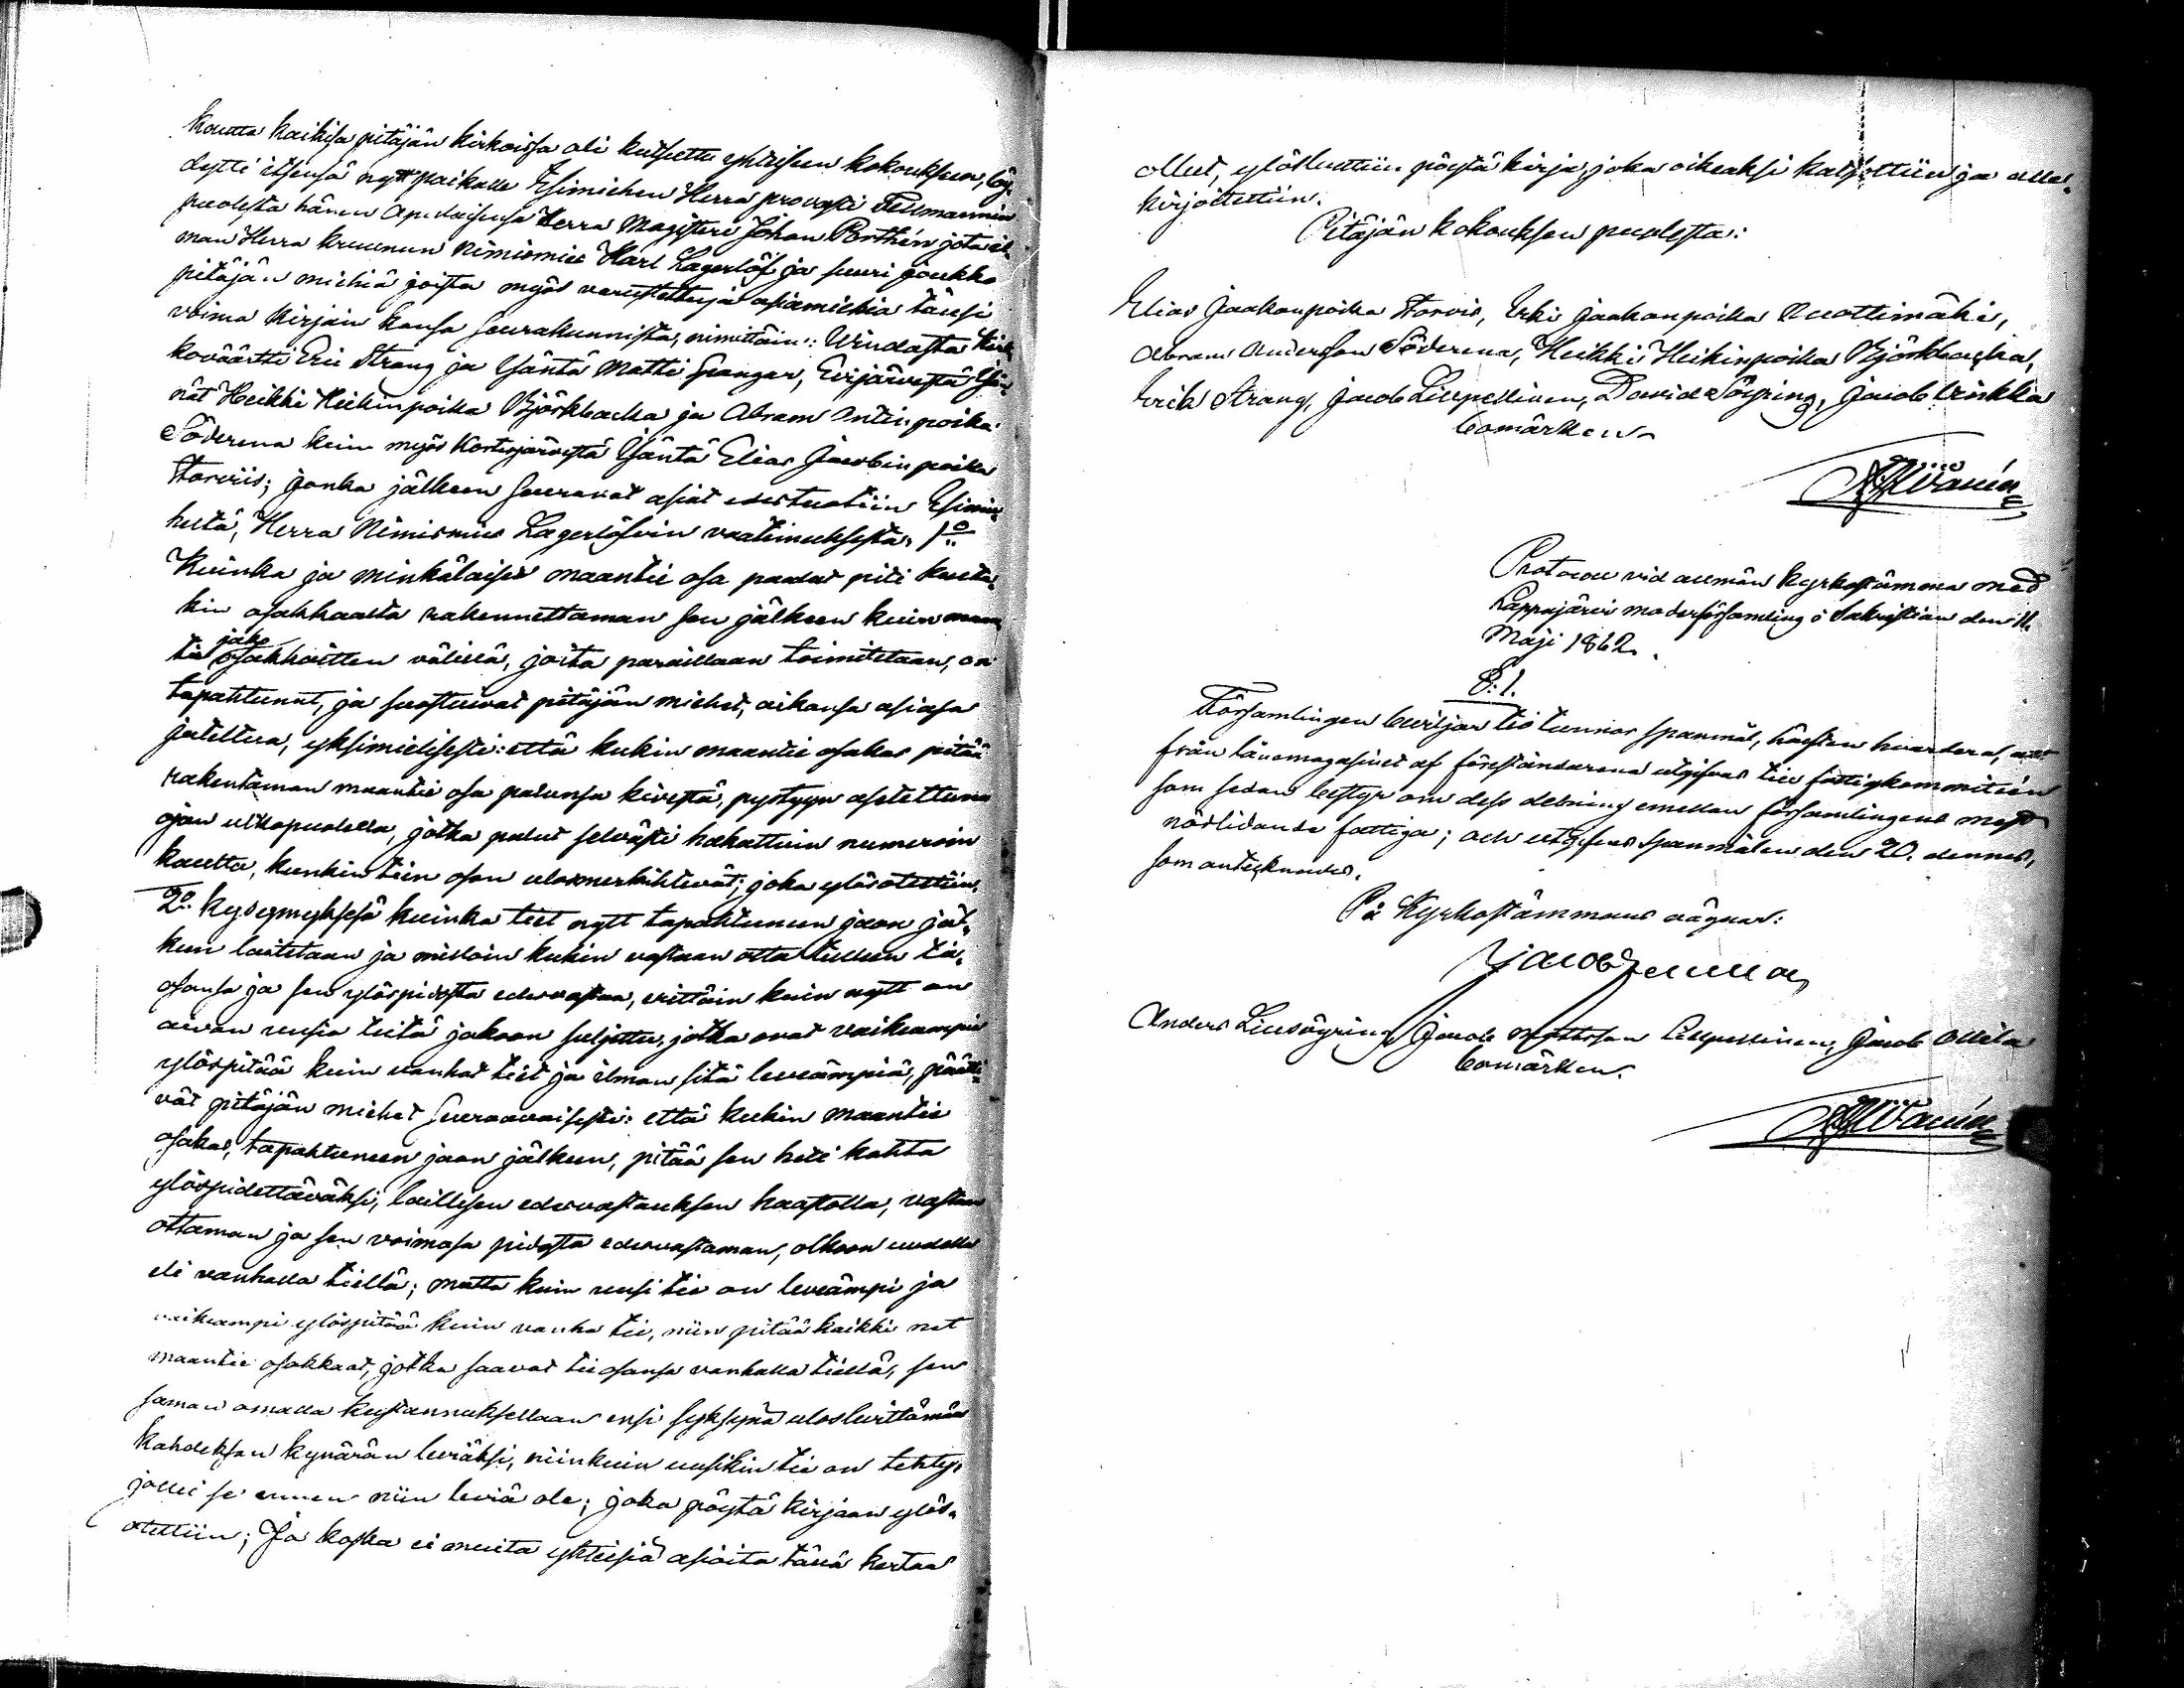 kautta kaikisa pitäjän kirkoissa oli kutsuttu yhteiseen kokoukseen, löy-
dytti itsensä nytt paikalle Esimiehen Herra provasti Fellmannin
puolesta hänen Apulaisensa Herra Magisteri Johan Porthén jota il-
man Herra kruunun Nimismies Karl Lagerlöf ja suuri joukko
pitäjän miehiä joista myös varustettuja asiamiehiä täysi
voima kirjain kansa seurakunnista, nimittäin: Windasta Kirk-
kovärtti Eric Strang ja Isäntä Matti Granger, Evijärvestä Isän-
nät Heikki Heikinpoika Björkbacka ja Abram Antinpoika
Söderena kuin myös Kortesjärvestä Isäntä Elias Jacobin poika
Storviis; jonka jälkeen seuravat asiat edestuotiin Esimie-
heltä, Herra Nimismies Lagerlöfvin vaatimuksesta. 1o
Kuinka ja minkälaiset maantie osa paalut piti kunki-
kin osakkaalta rakennettaman sen jälkeen kuin maan
tie jako osakkaitten välillä, joita paraillaan toimitetaan, on
tapahtunut, ja suostuivat pitäjän miehet, aikansa asiasa
juteltua, yksimielisesti: että kukin maantie osakas pitää
rakentaman maantie osa palunsa kivestä, pystyyn asetettuna
ojan ulkopuolella, jotka palut selvästi hakattuin numeroin
kautta, kunkin tien osan ulosmerkihtevät; joka ylösotettiin.
2o Kysymyksesä kuinka tiet nytt tapahtuneen jaon jäl-
keen laitetaan ja milloin kukin vastaan otta tulleen tie-
osansa ja sen ylöspidosta edesvastaa, erittäin kuin nytt on
aivan uusia teitä jakoon suljettu, jotka ovat vaikeampia
ylöspitää kuin vanhat tiet ja ilman sitä leveämpiä, päätti-
vät pitäjän miehet seuraavaisesti: että kukin maantie
osakas, tapahtuneen jaon jälkeen, pitää sen heti kohta
ylöspidettäväksi, laillisen edesvastauksen haastolla, vastaan
ottaman ja sen voimasa pidosta edesvastaman, olkoon uudella
eli vanhalla tiellä; mutta kuin uusi tie on leveämpi ja
vaikeampi ylöspitää kuin vanha tie, niin pitää kaikki net
maantie osakkaat, jotka saavat tieosansa vanhalla tiellä, sen
saman omalla kustannuksellaan ensi syksynä uloslevittämän
kahdeksan kynärän leviäksi, niinkuin uusikin tie on tehty,
jollei se ennen niin leviä ole; joka pöytä kirjaan ylös-
otettiin; Ja koska ei muita yhteisiä asioita tällä kertaa
ollut, ylösluettiin pöytä kirja, joka oikeaksi katsottiin ja alle-
kirjoitettiin.
Pitäjän kokouksen puolesta:
Elias Jaakonpoika Storvis, Erki Jaakonpoika Ruottimäki,
Abram Andersson Söderena, Heikki Heikinpoika Björkbacka,
Erik Strang, Jacob Lillpellinen, David Söyring, Jacob Vinkka
bomärken
Protocoll vid allmän kyrkostämma med
Lappajärvi moderförsamling i Sakristian den 11.
Maji 1862.
§. 1.
Församlingen beviljar tio tunnor spanmål, hälften hvardera, att
från lånemagasinet af föreståndarena utgifvas till fattigkommittén
som sedan bestyr om dess delning emellan församlingens mest
nödlidande fattiga; och utgifves spanmålen den 20. dennes,
som antecknades.
På Kyrkostämmans vägnar:
Anders Lillsöyring Jacob Mattsson Lillpellinen, Jacob Ollila
bomärken.